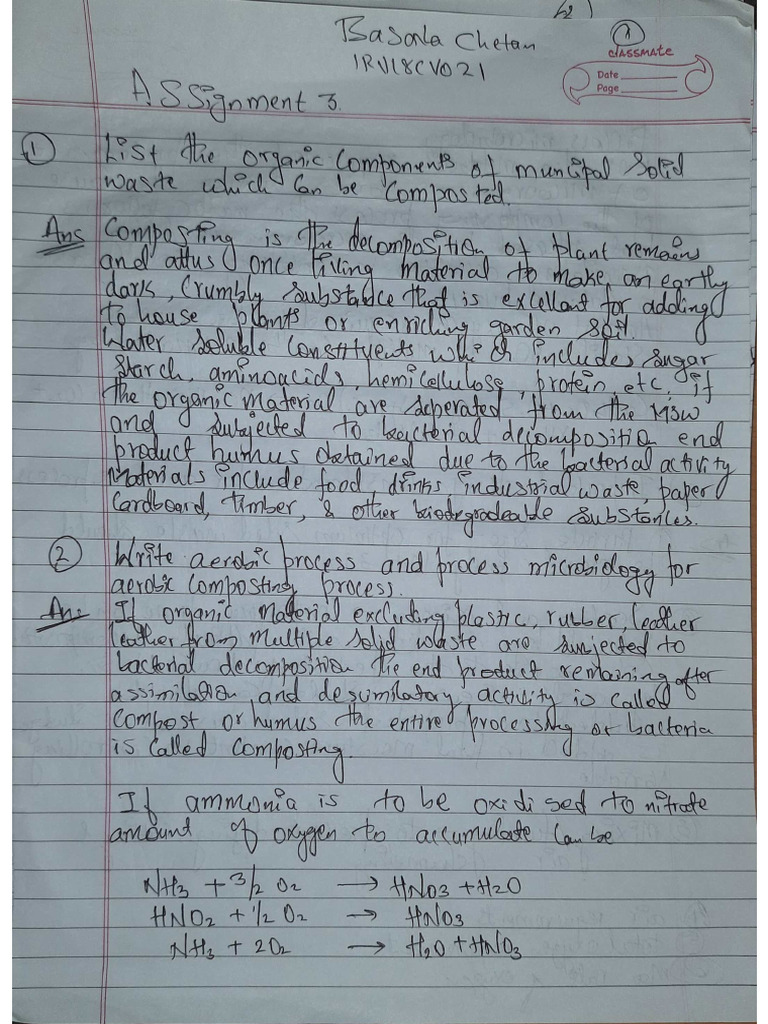 Basala Chetan
1RV18CV021
1
classmate
Date
Page
Assignment 3.
1 List the organic components of muncipal solid
waste which can be composted.
Ans Composting is the decomposition of plant remains
and once living material to make an earthy
dark, crumbly substance that is excellant for adding
to house plants or enriching garden soil.
Water soluble constituents which includes sugar
starch, aminoacids, hemicellulose, protein, etc, if
the organic material are seperated from the MSW
and subjected to bacterial decomposition end
product humus obtained due to the bacterial activity
Materials include food drinks industrial waste, paper
Cardboard, timber, & other biodegradeable substances.
2 Write aerobic process and process microbiology for
aerobic composting process.
Ans If organic material excluding plastic, rubber, leather
leather from multiple solid waste are subjected to
bacterial decomposition the end product remaining after
assimilation and desimilatory activity is called
compost or humus the entire processing or bacteria
is called composting.
If ammonia is to be oxidised to nitrate
amount of oxygen to accumulate can be
NH3 + 3/2 O2 → HNO3 + H2O
HNO2 + 1/2 O2 → HNO3
NH3 + 2O2 → H2O + HNO3